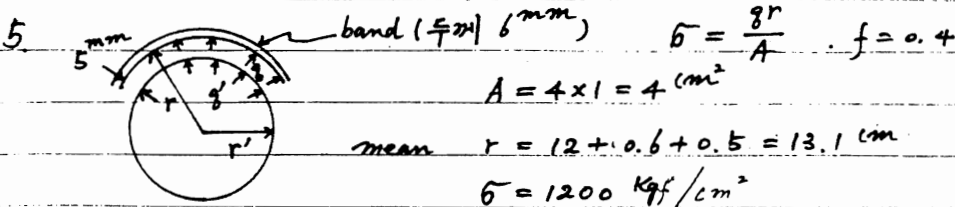 5.
5 mm
band (두께 6 mm)
r
q'
q
r'
σ = qr/A . f = 0.4
A = 4 × 1 = 4 cm²
mean r = 12 + 0.6 + 0.5 = 13.1 cm
σ = 1200 Kgf/cm²